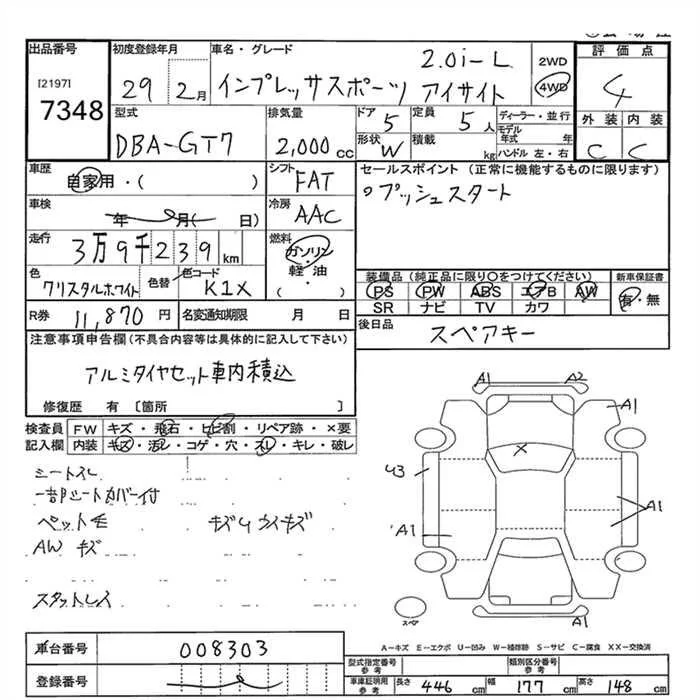 出品番号
[2197]
7348
初度登録年月
29 2月
車名・グレード
2.0i-L
インプレッサスポーツ アイサイト
2WD
4WD
評価点
4
外装 内装
C C
型式
DBA-GT7
排気量
2,000 cc
ドア 5
定員 5 人
形状 W
積載 kg
ディーラー・並行
モデル年式 年
ハンドル 左・右
車歴
自家用・( )
シフト
FAT
車検
年 月( 日)
冷房
AAC
走行
3万9千239 km
燃料
ガソリン
軽・油
( )
色
クリスタルホワイト
色替
色コード
K1X
R券 11,870 円
名変通知期限 月 日
セールスポイント (正常に機能するものに限ります)
○プッシュスタート
装備品 (純正品に限り○をつけてください)
PS PW ABS エアB AW
SR ナビ TV カワ
新車保証書
有・無
後日品
スペアキー
注意事項申告欄(不具合内容等は具体的に記入して下さい)
アルミタイヤセット車内積込
修復歴 有 〔箇所 〕
検査員記入欄
FW キズ・飛石・ヒビ割・リペア跡・×要
内装 キズ・汚レ・コゲ・穴・スレ・キレ・破レ
シートスレ
一部シートカバー付
ペット毛
キズUウイキズ
AW キズ
スタットレス
A1 A2
A1
X
U3
A1
A1
A1
スペア
A－キズ E－エクボ U－凹み W－補修跡 S－サビ C－腐食 XX－交換済
車台番号 008303
登録番号
型式指定番号 参考
類別区分番号 参考
車庫証明用 参考
長さ 446 cm 幅 177 cm 高さ 148 cm